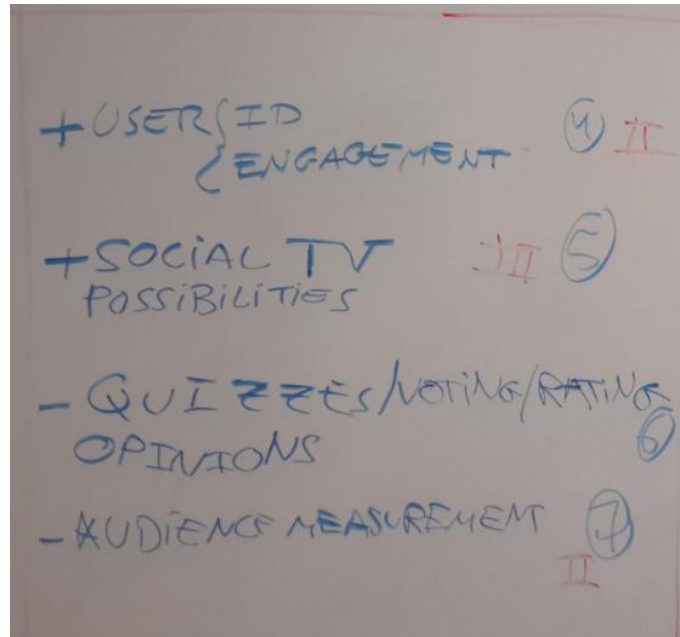 + USER { ID ④ II
ENGAGEMENT
+ SOCIAL TV III ⑤
POSSIBILITIES
- QUIZZES/VOTING/RATING
OPINIONS ⑥
- AUDIENCE MEASUREMENT ⑦
II